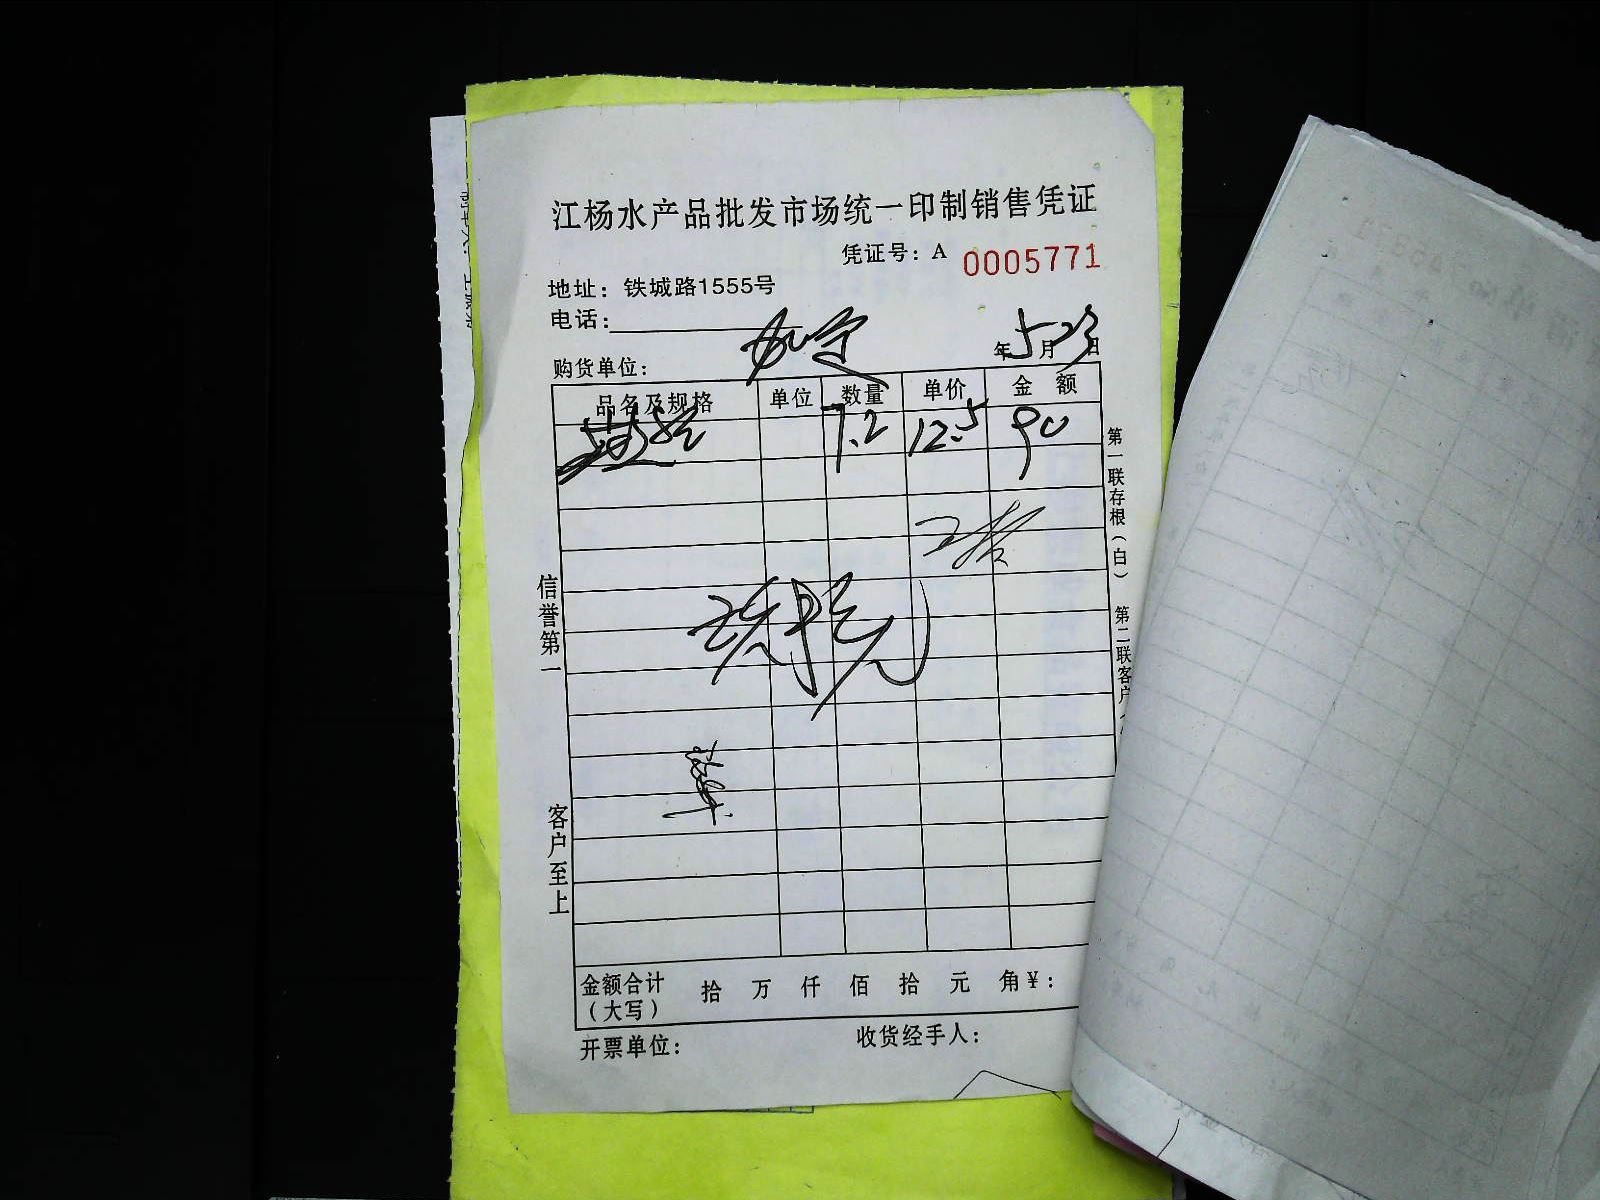 江杨水产品批发市场统一印制销售凭证
凭证号：A 0005771
地址：铁城路1555号
电话：
购货单位： 年 5 月 23 日
品名及规格 单位 数量 单价 金额
7.2 12.5 90
第一联存根（白） 第二联客户
信誉第一
客户至上
金额合计（大写） 拾 万 仟 佰 拾 元 角 ¥：
开票单位： 收货经手人：